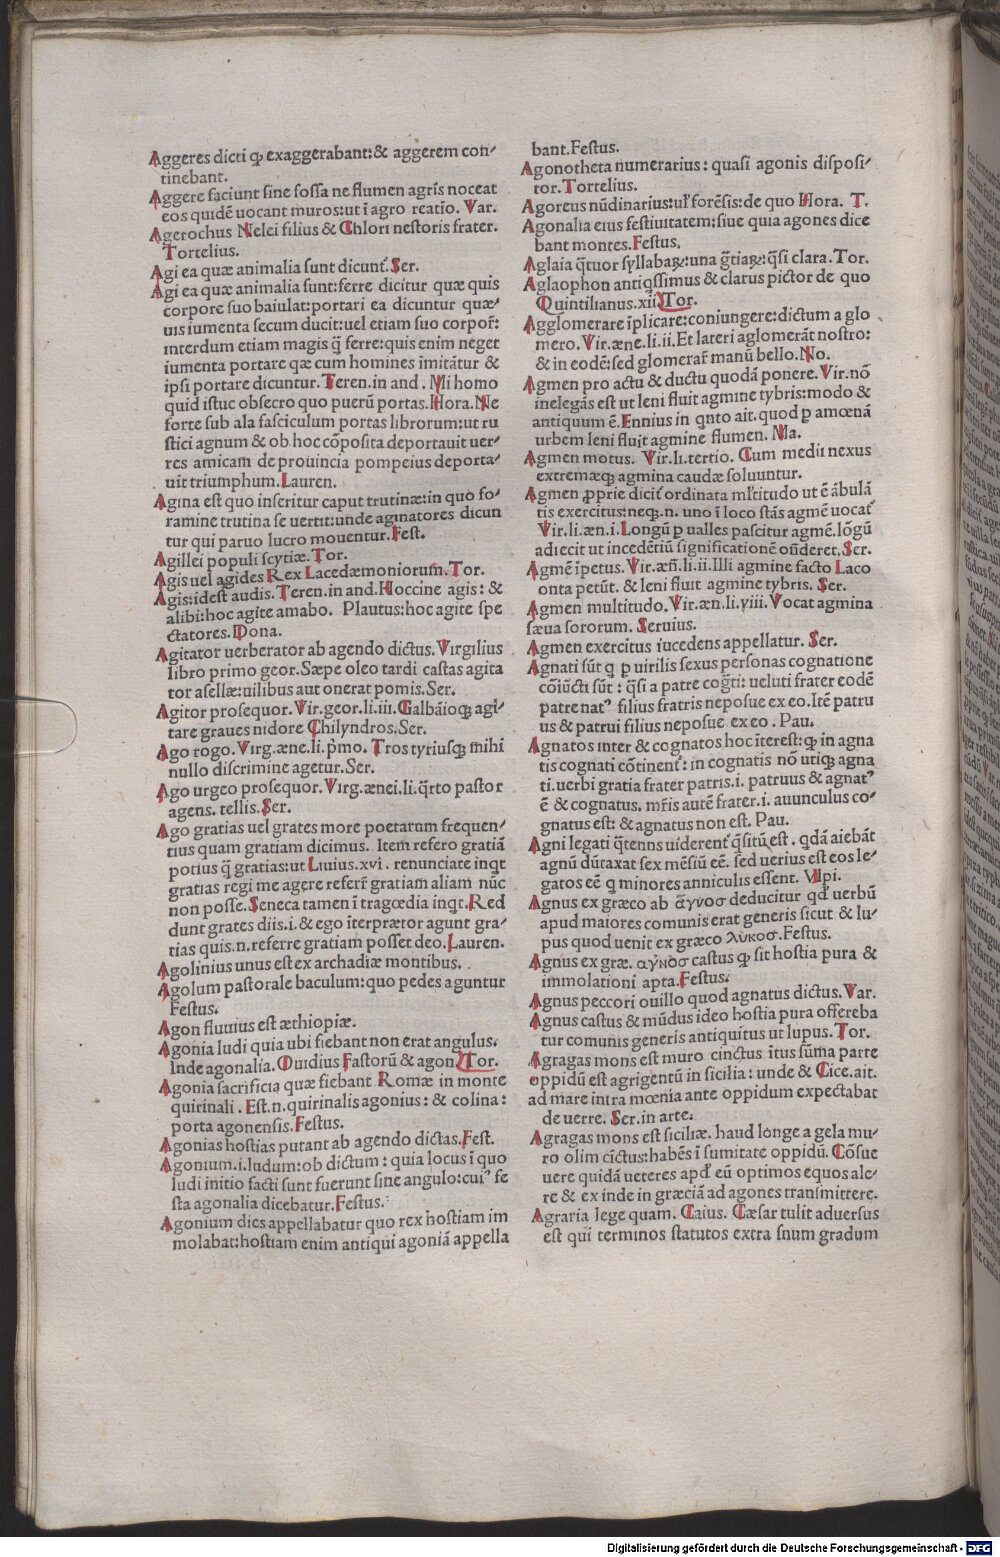 Aggeres dicti ꝙ exaggerabant:& aggerem con-
tinebant.
Aggere faciunt sine fossa ne flumen agris noceat
eos quidē uocant muros:ut ī agro reatio. Var.
Agerochus Nelei filius & Chlori nestoris frater.
Tortelius.
Agi ea quæ animalia sunt dicunt᷑.Ser.
Agi ea quæ animalia sunt:ferre dicitur quæ quis
corpore suo baiulat:portari ea dicuntur quæ-
uis iumenta secum ducit:uel etiam suo corpor᷑:
interdum etiam magis q̄ ferre:quis enim neget
iumenta portare quæ cum homines imitātur &
ipsi portare dicuntur.Teren.in and. Mi homo
quid istuc obsecro quo puerū portas.Hora.Ne
forte sub ala fasciculum portas librorum:ut ru
stici agnum & ob hoc cōposita deportauit uer-
res amicam de prouincia pompeius deporta-
uit triumphum.Lauren.
Agina est quo inseritur caput trutinæ:in quo fo-
ramine trutina se uertit:unde aginatores dicun
tur qui paruo lucro mouentur.Fest.
Agillei populi scytiæ.Tor.
Agis uel agides Rex Lacedæmoniorum.Tor.
Agis:idest audis.Teren.in and.Hoccine agis: &
alibi:hoc agite amabo. Plautus:hoc agite spe
ctatores.Dona.
Agitator uerberator ab agendo dictus.Virgilius
libro primo geor.Sæpe oleo tardi castas agita
tor asellæ:uilibus aut onerat pomis.Ser.
Agitor prosequor.Vir.geor.li.iii.Galbāioqꝫ agi-
tare graues nidore Chilyndros.Ser.
Ago rogo.Virg.æne.li.p̄mo.Tros tyriusqꝫ mihi
nullo discrimine agetur.Ser.
Ago urgeo prosequor.Virg.ænei.li.q̄rto pastor
agens. tellis.Ser.
Ago gratias uel grates more poetarum frequen-
tius quam gratiam dicimus. Item refero gratiā
potius q̄ gratias:ut Liuius.xvi.renunciate inqt
gratias regi me agere referr᷑ gratiam aliam nūc
non posse.Seneca tamen ī tragœdia inqt.Red
dunt grates diis.i.& ego īterprætor agunt gra-
tias quis.n.referre gratiam posset deo.Lauren.
Agolinius unus est ex archadiæ montibus.
Agolum pastorale baculum:quo pedes aguntur
Festus.
Agon fluuius est æthiopiæ.
Agonia ludi quia ubi fiebant non erat angulus.
Inde agonalia. Ouidius Fastorū & agon.Tor.
Agonia sacrificia quæ fiebant Romæ in monte
quirinali.Est.n.quirinalis agonius: & colina:
porta agonensis.Festus.
Agonias hostias putant ab agendo dictas.Fest.
Agonium.i.ludum:ob dictum: quia locus ī quo
ludi initio facti sunt fuerunt sine angulo:cuiꝰ fe
sta agonalia dicebatur.Festus.
Agonium dies appellabatur quo rex hostiam im
molabat:hostiam enim antiqui agoniā appella
bant.Festus.
Agonotheta numerarius: quasi agonis disposi-
tor.Tortelius.
Agoreus nūdinarius:ul᷑ forēsis:de quo Hora. T.
Agonalia eius festiuitatem:siue quia agones dice
bant montes.Festus.
Aglaia q̄tuor syllabaꝝ:una g̅tiaꝝ:q̄si clara.Tor.
Aglaophon antiqssimus & clarus pictor de quo
Quintilianus.xii.Tor.
Agglomerare īplicare:coniungere:dictum a glo
mero.Vir.æne.li.ii.Et lateri aglomerāt nostro:
& in eodē:sed glomerar᷑ manū bello.No.
Agmen pro actu & ductu quodā ponere.Vir.nō
inelegās est ut leni fluit agmine tybris:modo &
antiquum ē.Ennius in qnto ait.quod p amœnā
urbem leni fluit agmine flumen. Ma.
Agmen motus. Vir.li.tertio. Cum medii nexus
extremæqꝫ agmina caudæ soluuntur.
Agmen ꝓprie dicit᷑ ordinata ml᷑titudo ut ē ābulā
tis exercitus:neqꝫ.n. uno ī loco stās agmē uocat᷑
Vir.li.æn.i.Longū p ualles pascitur agmē.lōgū
adiecit ut incedētiū significationē oñderet.Ser.
Agmē īpetus.Vir.æñ.li.ii.Illi agmine facto Laco
onta petūt. & leni fluit agmine tybris. Ser.
Agmen multitudo.Vir.æn.li.viii.Vocat agmina
sæua sororum. Seruius.
Agmen exercitus iucedens appellatur. Ser.
Agnati sūt q p uirilis sexus personas cognatione
cōiūcti sūt : q̄si a patre cog̅ti: ueluti frater eodē
patre natꝰ filius fratris neposue ex eo.Itē patru
us & patrui filius neposue ex eo . Pau.
Agnatos inter & cognatos hoc īterest:ꝙ in agna
tis cognati cōtinent᷑: in cognatis nō utiqꝫ agna
ti.uerbi gratia frater patris.i. patruus & agnatꝰ
ē & cognatus. mr̄is autē frater.i. auunculus co-
gnatus est: & agnatus non est. Pau.
Agni legati q̄tenns uiderent᷑ q̄sitū est . qdā aiebāt
agnū dūtaxat sex mēsiū eē. sed uerius est eos le-
gatos eē q minores anniculis essent. Vlpi.
Agnus ex græco ab ἅγνοσ deducitur qđ uerbū
apud maiores comunis erat generis sicut & lu-
pus quod uenit ex græco λύκοσ.Festus.
Agnus ex græ. αγ̓νὸσ castus ꝙ sit hostia pura &
immolationi apta.Festus.
Agnus peccori ouillo quod agnatus dictus.Var.
Agnus castus & mūdus ideo hostia pura offereba
tur comunis generis antiquitus ut lupus.Tor.
Agragas mons est muro cinctus ītus sūma parte
oppidū est agrigentū in sicilia: unde & Cice.ait.
ad mare intra mœnia ante oppidum expectabat
de uerre. Ser.in arte.
Agragas mons est siciliæ. haud longe a gela mu-
ro olim cīctus:habēs ī sumitate oppidū. Cōsue
uere quidā ueteres apđ eū optimos equos ale-
re & ex inde in græciā ad agones transmittere.
Agraria lege quam. Caius. Cæsar tulit aduersus
est qui terminos statutos extra snum gradum
Digitalisierung gefördert durch die Deutsche Forschungsgemeinschaft - DFG